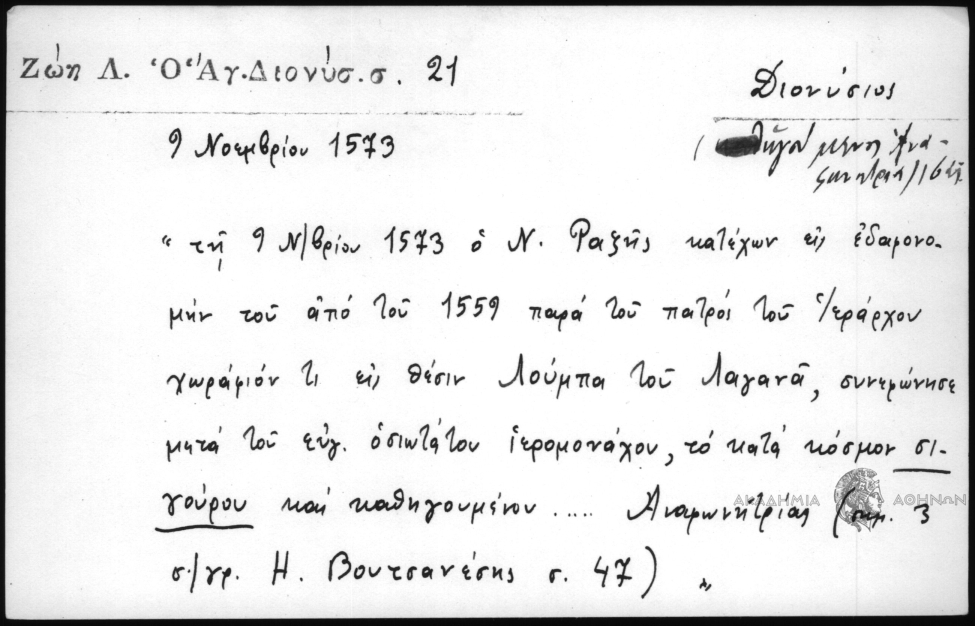 Ζώη Λ. Ὁ Ἁγ.Διονύσ.σ. 21
Διονύσιος
9 Νοεμβρίου 1573
" τῇ 9 Ν/βρίου 1573 ὁ Ν. Ραξῆς κατέχων εἰς ἐδαφονο-
μήν του ἀπό τοῦ 1559 παρά τοῦ πατρός τοῦ Ἱεράρχου
χωράφιόν τι εἰς θέσιν Λούμπα τοῦ Λαγανᾶ, συνεφώνησε
μετά τοῦ εὐγ. ὁσιωτάτου ἱερομονάχου, τό κατά κόσμον Σι-
γούρου καί καθηγουμένου ..... Ἀναφωνητρίας (σημ. 3
σ/γρ. Η. Βουτσανέσης σ. 47) "
ΑΚΑΔΗΜΙΑ ΑΘΗΝΩΝ